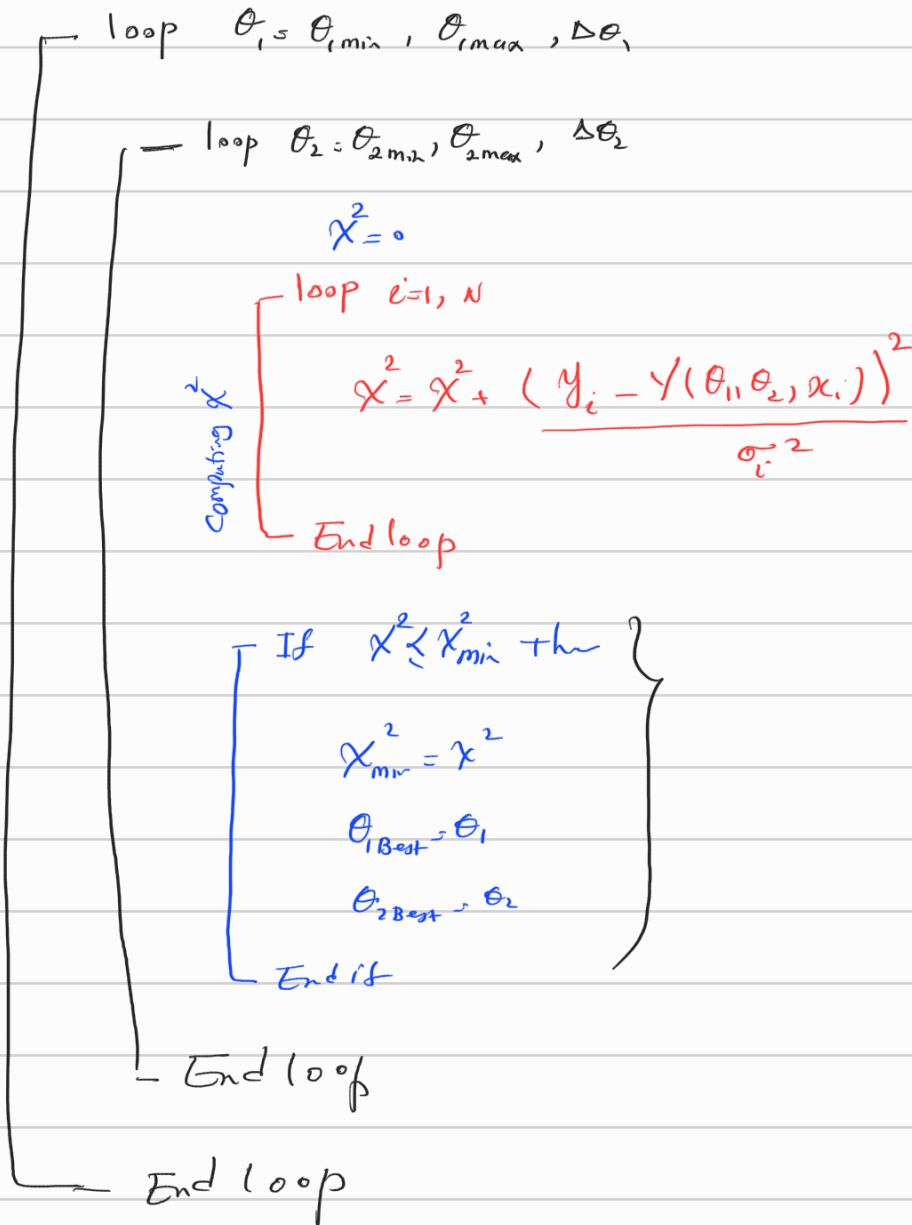 loop θ₁ = θ₁min , θ₁max , Δθ₁
loop θ₂ = θ₂min , θ₂max , Δθ₂
χ² = 0
loop i=1, N
χ² = χ² + (yᵢ - Y(θ₁, θ₂, xᵢ))² / σᵢ²
Computing χ²
End loop
If χ² ≤ χ²min then
χ²min = χ²
θ₁Best = θ₁
θ₂Best = θ₂
End if
End loop
End loop